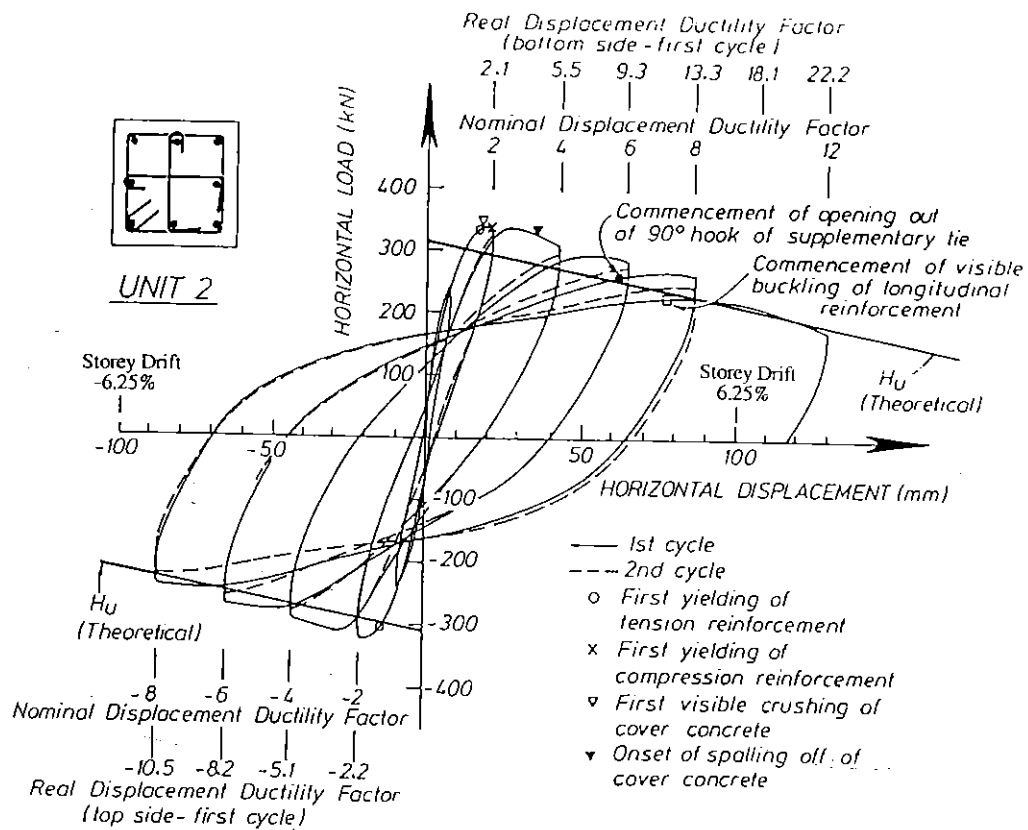 Real Displacement Ductility Factor
(bottom side - first cycle)
2.1 5.5 9.3 13.3 18.1 22.2
Nominal Displacement Ductility Factor
2 4 6 8 12
HORIZONTAL LOAD (kN)
400
300
200
100
Commencement of opening out
of 90° hook of supplementary tie
Commencement of visible
buckling of longitudinal
reinforcement
UNIT 2
Storey Drift
-6.25%
Storey Drift
6.25%
Hu
(Theoretical)
-100 -50 50 100
HORIZONTAL DISPLACEMENT (mm)
-100
-200
-300
-400
Hu
(Theoretical)
1st cycle
2nd cycle
First yielding of
tension reinforcement
First yielding of
compression reinforcement
First visible crushing of
cover concrete
Onset of spalling off of
cover concrete
-8 -6 -4 -2
Nominal Displacement Ductility Factor
-10.5 -8.2 -5.1 -2.2
Real Displacement Ductility Factor
(top side - first cycle)